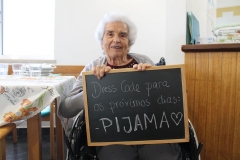 Dress Code para
os próximos dias:
- PIJAMA ♡